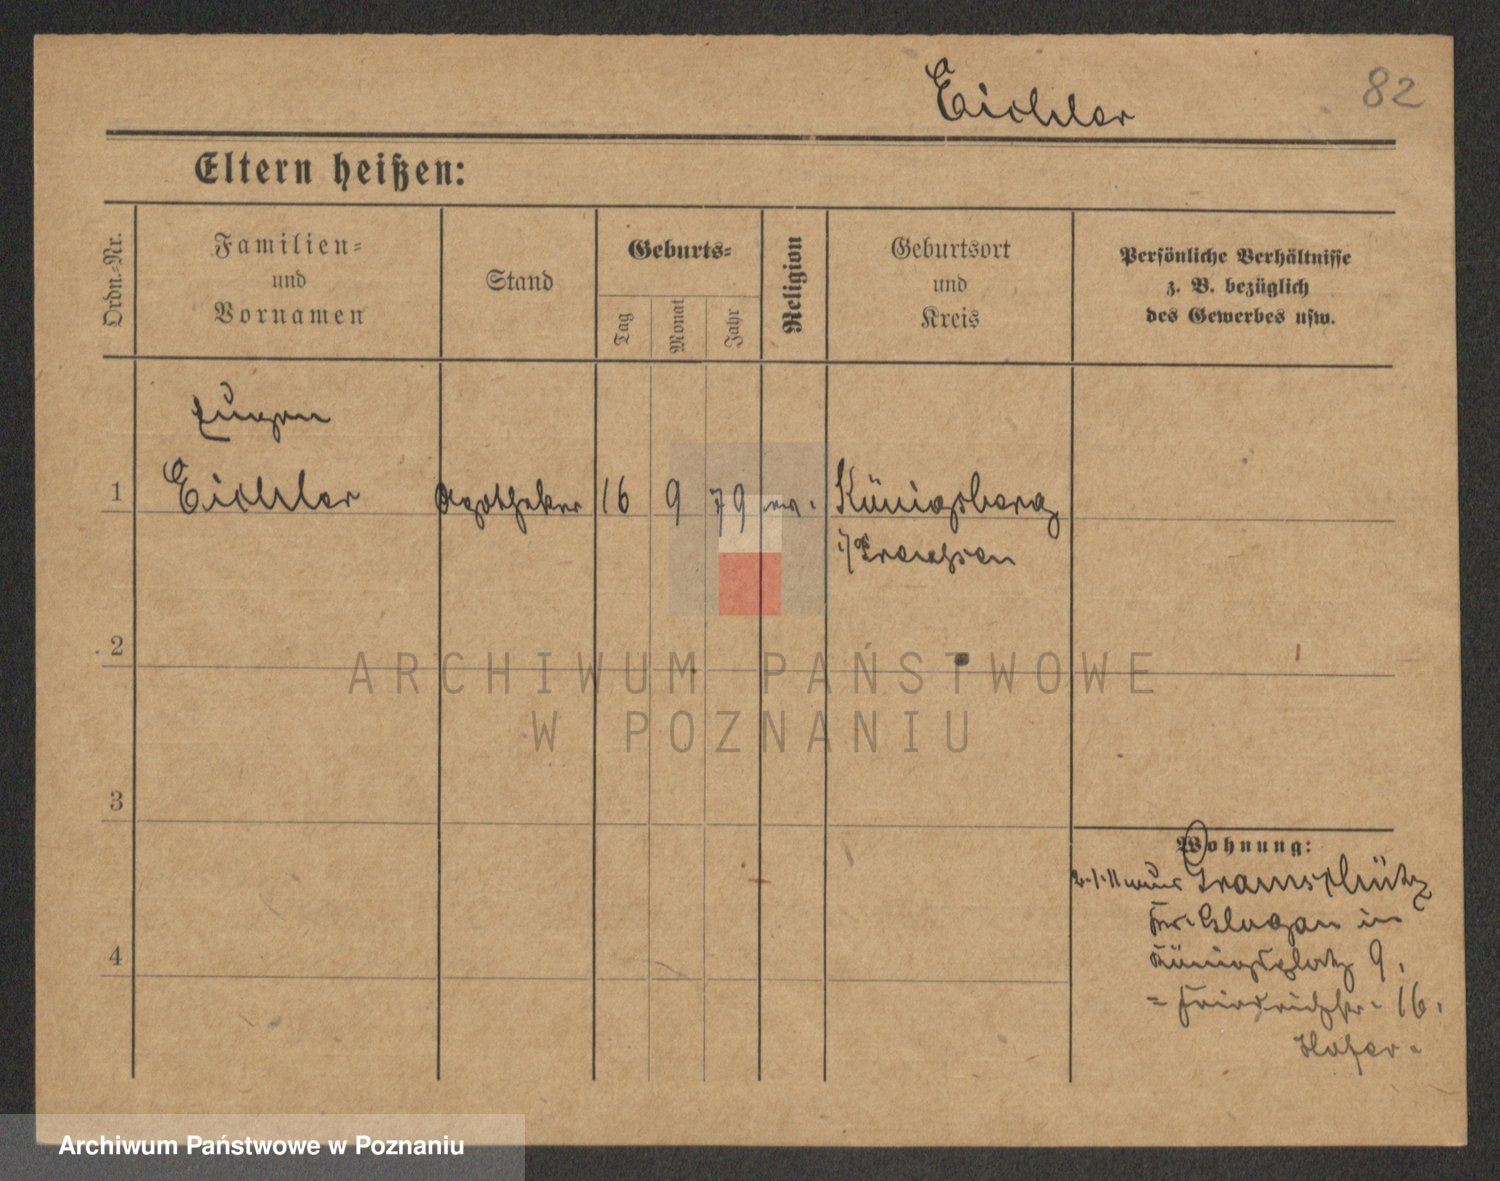 Eichler
82
Eltern heißen:
Ordn.-Nr.
Familien-
und
Vornamen
Stand
Geburts-
Tag
Monat
Jahr
Religion
Geburtsort
und
Kreis
Persönliche Verhältnisse
z. B. bezüglich
des Gewerbes usw.
Eugen
1 Eichler Apotheker 16 9 79 ev. Königsberg
i/Preussen
2
3
4
Wohnung:
Gramschütz
Kr. Glogau in
Königsplatz 9.
= Friedrichstr. 16.
Hofer.
ARCHIWUM PAŃSTWOWE
W POZNANIU
Archiwum Państwowe w Poznaniu